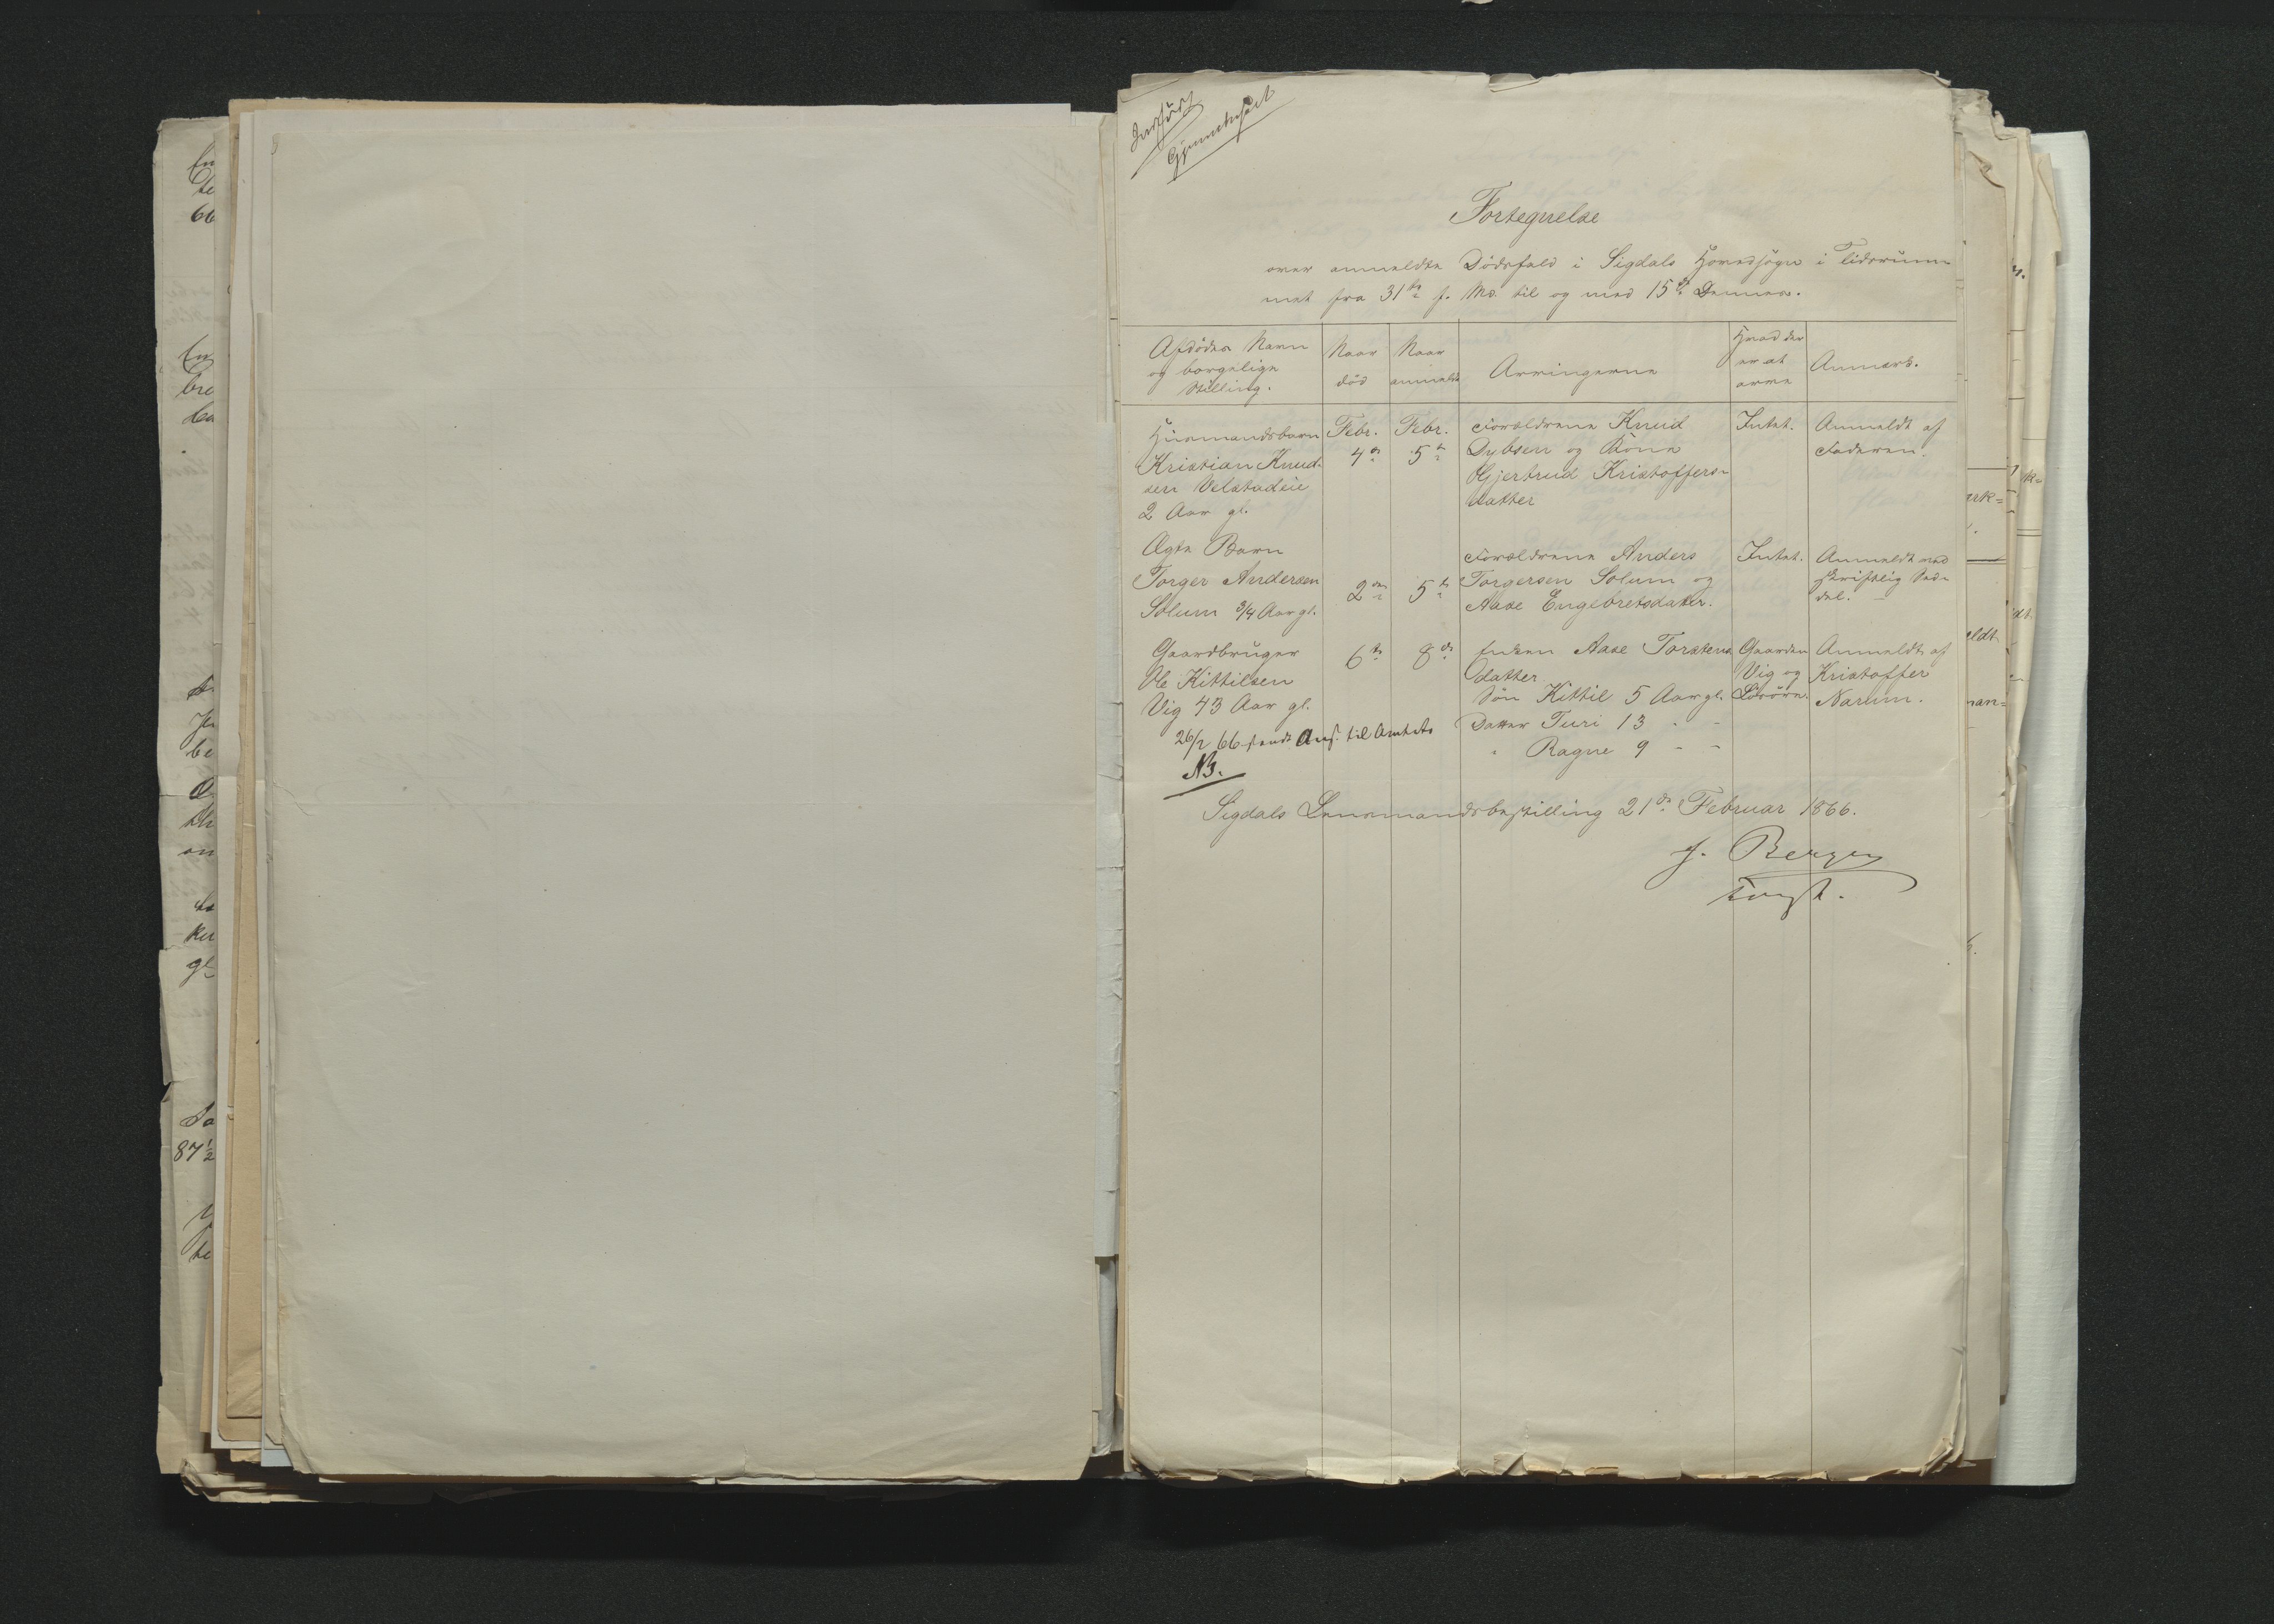 Indført
Gjennemseet
Fortegnelse
over anmeldte Dødsfald i Sigdals Hovedsogn i Tidsrum
met fra 31te f. Md. til og med 15de Dennes.
Afdødes Navn
og borgelige
Stilling.
Naar
død
Naar
anmeldt
Arvingerne
Hvad der
er at
arve
Anmærk.
Huusmandsbarn
Kristian Knud-
sen Velstadeie
2 Aar gl.
Febr.
4de
Febr.
5te
Forældrene Knud
Dybsen og Kone
Gjertrud Kristoffers-
datter
Intet.
Anmeldt af
Faderen.
Ægte Barn
Torger Andersen
Solum 3/4 Aar gl.
2den
5te
Forældrene Anders
Torgersen Solum og
Aase Engebretsdatter.
Intet.
Anmeldt med
skriftlig Sed-
del.
Gaardbruger
Ole Kittilsen
Vig 43 Aar gl.
6te
8de
Enken Aase Torstens
datter
Søn Kittil 5 Aar gl.
Datter Turi 13 - -
" Ragne 9 - -
Gaarden
Vig og
Løsøre.
Anmeldt af
Kristoffer
Narum.
26/2 66 sendt Anf. til Amtets
N3.
Sigdals Lensmandsbestilling 21de Februar 1866.
J. Bergen
konst.